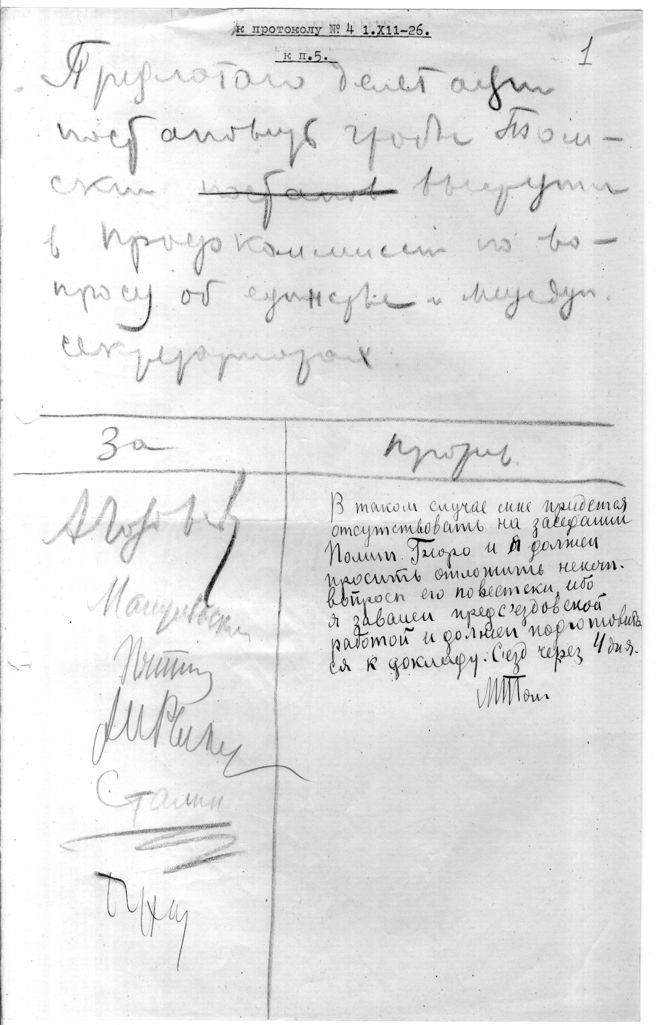 к протоколу № 4 1.XII-26.
к п.5.
1
Предлагаю делегации
постановить чтобы Том-
ский выступил
в Профкомиссии по во-
просу об единстве и междун.
секретариатах.
За
Против
В таком случае мне придется
отсутствовать на заседании
Полит. Бюро и я должен
просить отложить некот.
вопросы его повестки, ибо
я завален предс'ездовской
работой и должен подготовить
ся к докладу. С'езд через 4 дня.
МТом
Мануильский
Сталин
Бухар